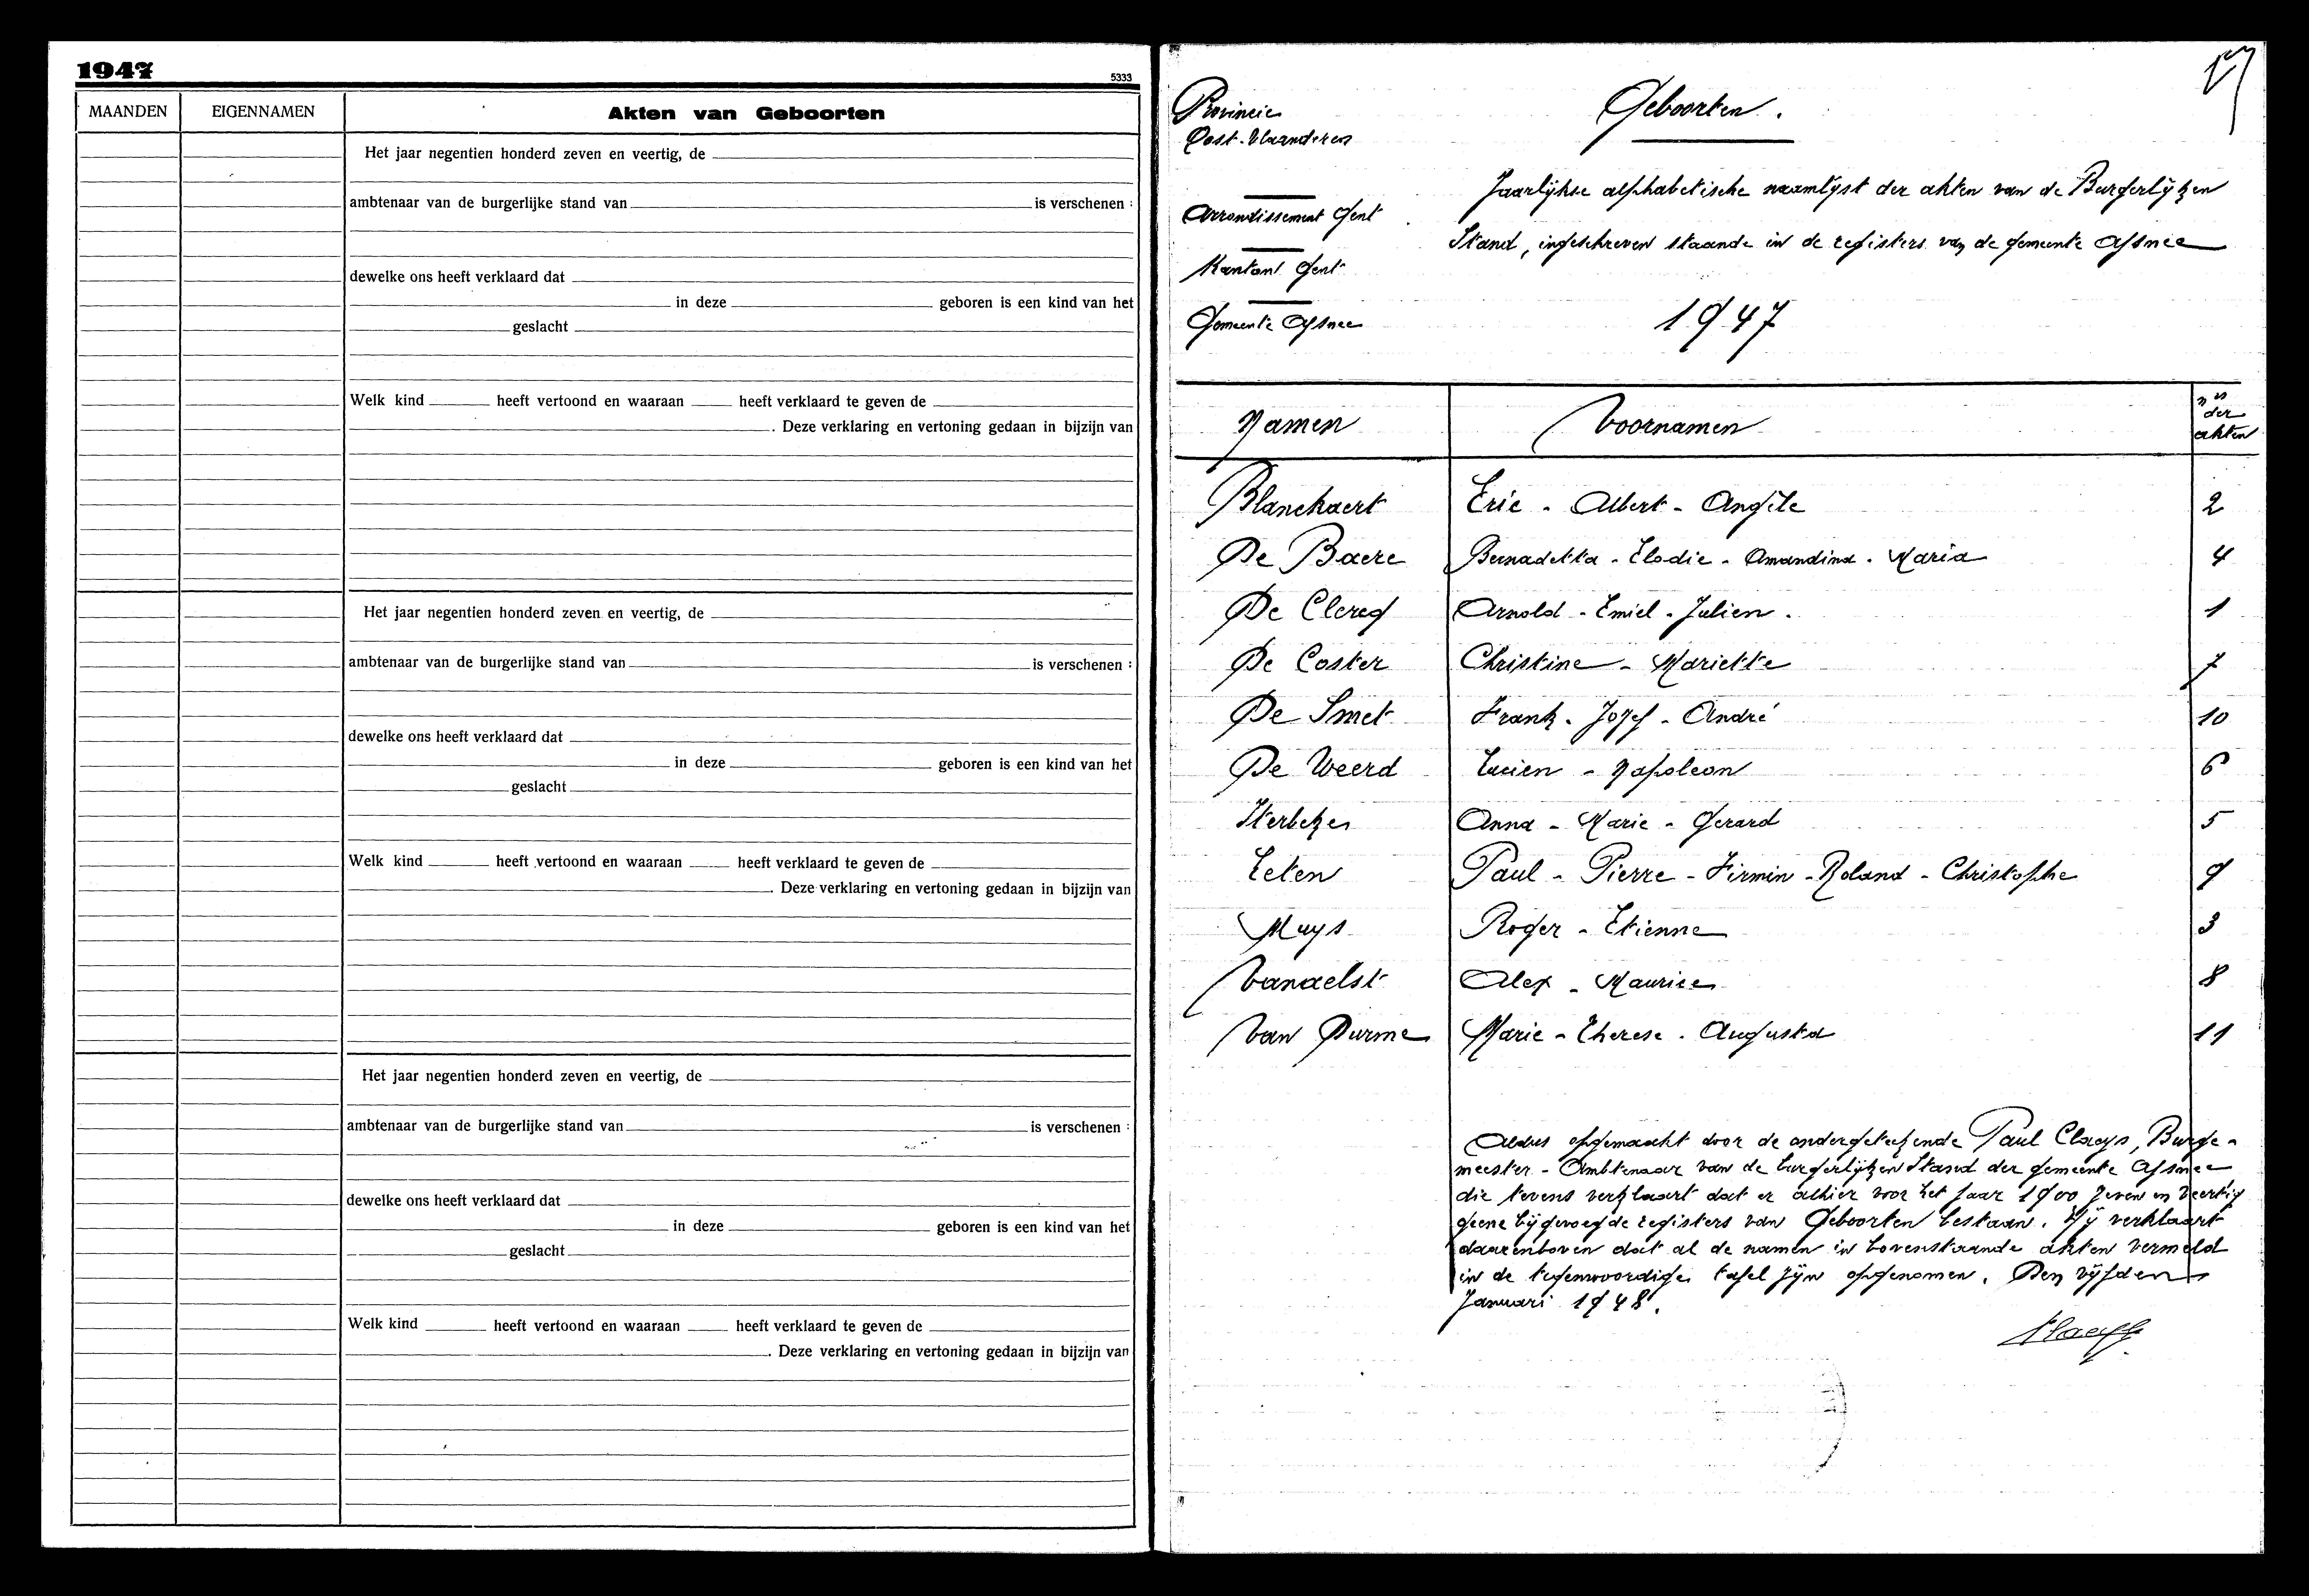 1947
5333
MAANDEN EIGENNAMEN Akten van Geboorten
Het jaar negentien honderd zeven en veertig, de
ambtenaar van de burgerlijke stand van is verschenen :
dewelke ons heeft verklaard dat
in deze geboren is een kind van het
geslacht
Welk kind heeft vertoond en waaraan heeft verklaard te geven de
. Deze verklaring en vertoning gedaan in bijzijn van
Het jaar negentien honderd zeven en veertig, de
ambtenaar van de burgerlijke stand van is verschenen :
dewelke ons heeft verklaard dat
in deze geboren is een kind van het
geslacht
Welk kind heeft vertoond en waaraan heeft verklaard te geven de
. Deze verklaring en vertoning gedaan in bijzijn van
Het jaar negentien honderd zeven en veertig, de
ambtenaar van de burgerlijke stand van is verschenen :
dewelke ons heeft verklaard dat
in deze geboren is een kind van het
geslacht
Welk kind heeft vertoond en waaraan heeft verklaard te geven de
. Deze verklaring en vertoning gedaan in bijzijn van
Provincie
Oost-Vlaanderen
Arrondissement Gent
Kanton Gent
Gemeente Afsnee
Geboorten.
Jaarlijkse alphabetische naamlijst der akten van de Burgerlijken
Stand, ingeschreven staande in de registers van de gemeente Afsnee
1947
Namen Voornamen nrs der akten
Blanckaert Eric - Albert - Angèle 2
De Baere Bernadetta - Elodie - Amandina - Maria 4
De Clercq Arnold - Emiel - Julien. 1
De Coster Christine - Mariette 7
De Smet Frank - Jozef - André 10
De Weerd Lucien - Napoleon 6
Anna - Marie - Gerard 5
Leten Paul - Pierre - Firmin - Roland - Christophe 9
Muys Roger - Etienne 3
Vanaelst Alex - Maurice 8
Van Durme Marie - Therese - Augusta 11
Aldus opgemaakt door de ondergetekende Paul Claeys, Burge-
meester - Ambtenaar van de burgerlijken Stand der gemeente Afsnee
die tevens verklaart dat er alhier voor het jaar 1900 zeven en veertig
geene bijgevoegde registers van Geboorten bestaan. Hij verklaart
daarenboven dat al de namen in bovenstaande akten vermeld
in de tegenwoordige tafel zijn opgenomen. Den vijfden
Januari 1948.
Claeys